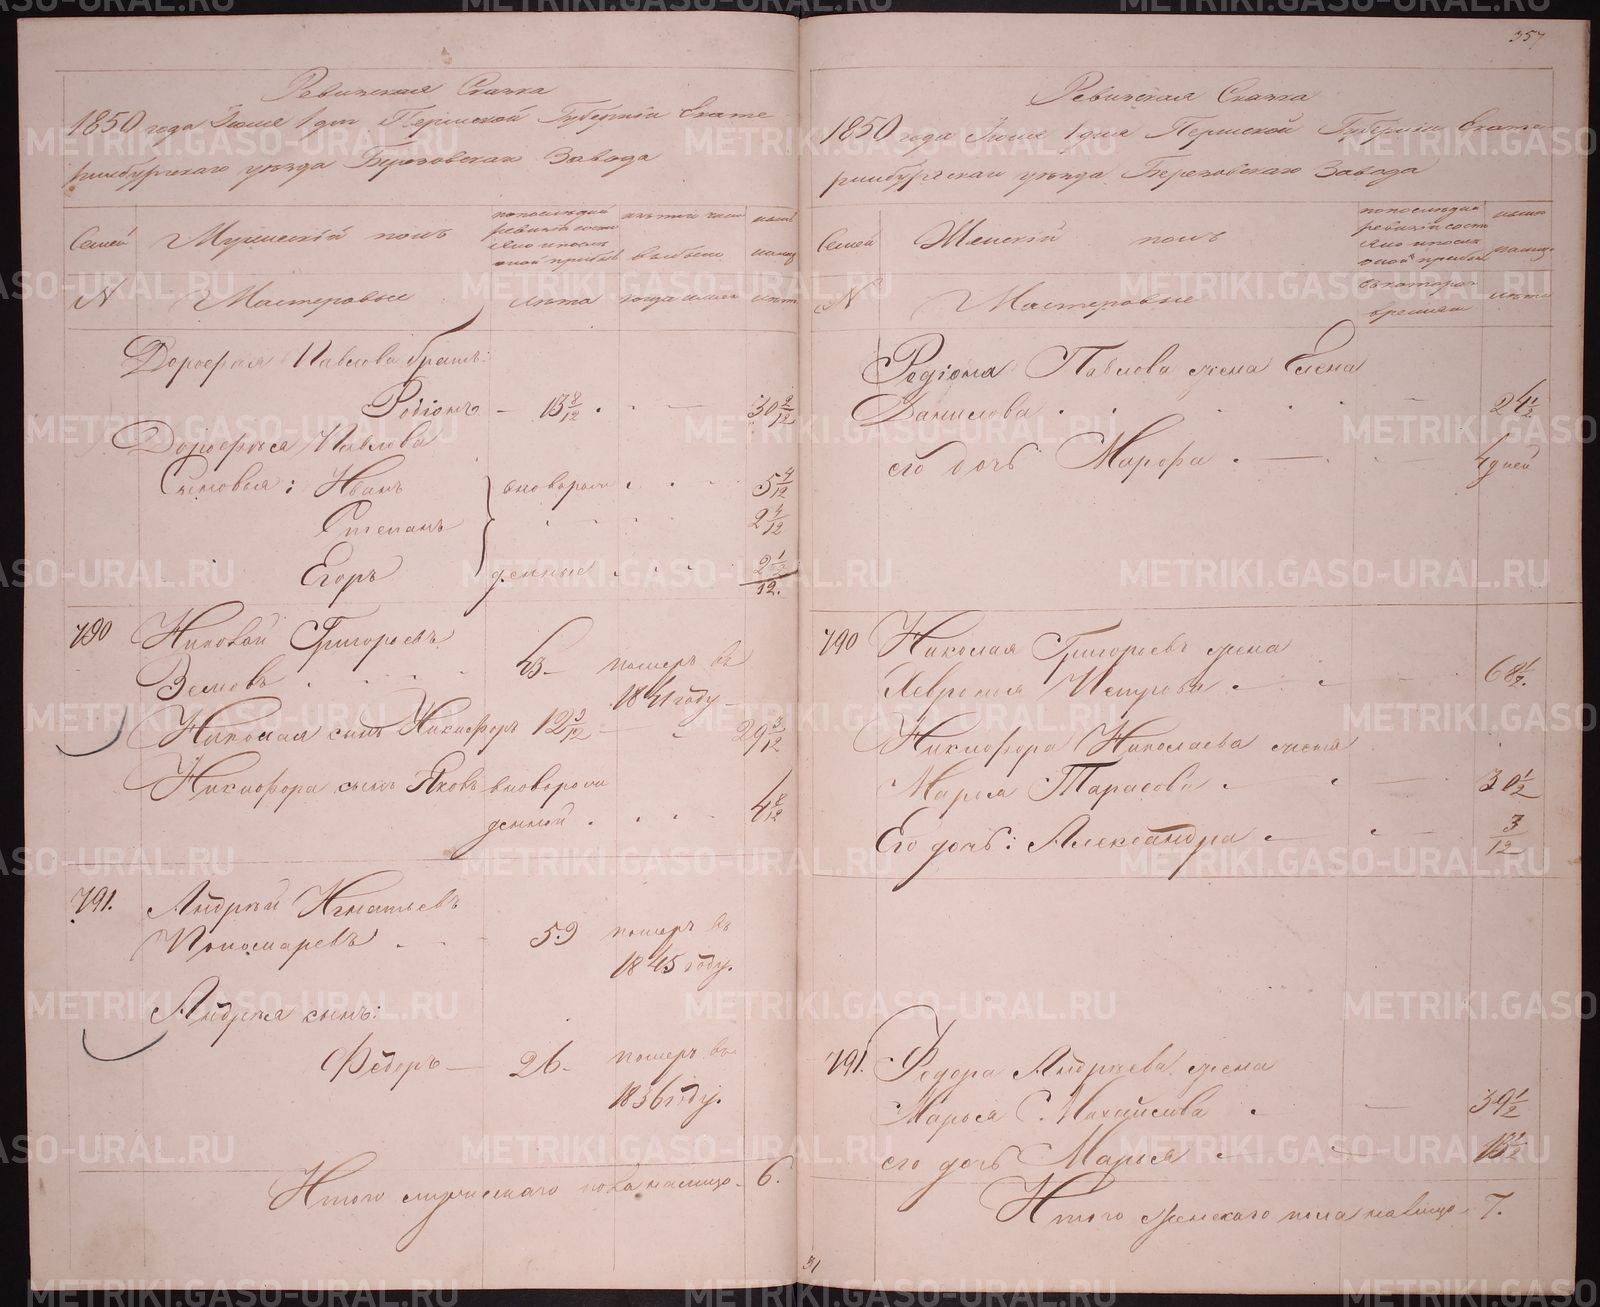 Ревизская Сказка
1850 года Июня 1 дня Пермской Губернiи Екате
ринбургскаго уѣзда Березовскаго Завода
Семей
Мужескiй полъ
по последней ревизiи состояло и после оной прибыло
изъ того числа выбыло
ныне на лицо
N
Мастеровые
лѣта
когда имен
лѣта
Дорофея Павлова братъ:
Родiонъ 13 8/12 30 2/12
Дорофея Павлова
Сыновья: Иванъ вноворож 5 4/12
Степанъ 2 4/12
Егоръ денные 2 1/12
790 Николай Григорьевъ
Земовъ 63 померъ въ
1841 году
Николая сынъ Никифоръ 12 3/12 29 3/12
Никифора сынъ Яковъ вноворож
денной 4 8/12
791. Андрей Игнатьевъ
Пономаревъ 59 померъ въ
1845 году.
Андрея сынъ:
Фёдоръ 26 померъ въ
1836 году.
Итого мужескаго пола налицо 6.
357
Ревизская Сказка
1850 года Июня 1 дня Пермской Губернiи Екате
ринбургскаго уѣзда Березовскаго Завода
Семей
Женскiй полъ
N
Мастеровые
лѣта
Родiона Павлова жена Елена
Данилова 24 1/2
его дочь Марфа 4 дней
790 Николая Григорьевъ жена
Хевронья Петрова 68 1/2
Никифора Николаева жена
Марья Тарасова 30 1/2
Его дочь: Александра 3/12
791. Федора Андреева жена
Марья С. Михайлова 39 1/2
его дочь Марья 18 1/2
Итого женскаго пола налицо 7.
31
METRIKI.GASO-URAL.RU